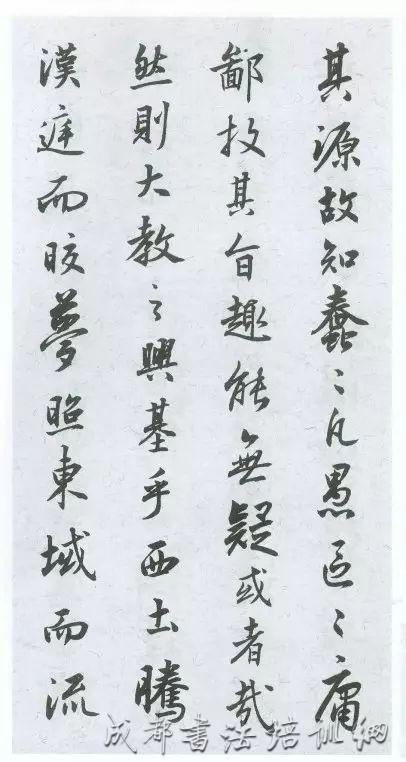 其源故知蠢〻凡愚區〻庸
鄙投其旨趣能無疑或者哉
然則大教之興基乎西土騰
漢庭而皎夢照東域而流
成都書法培训網